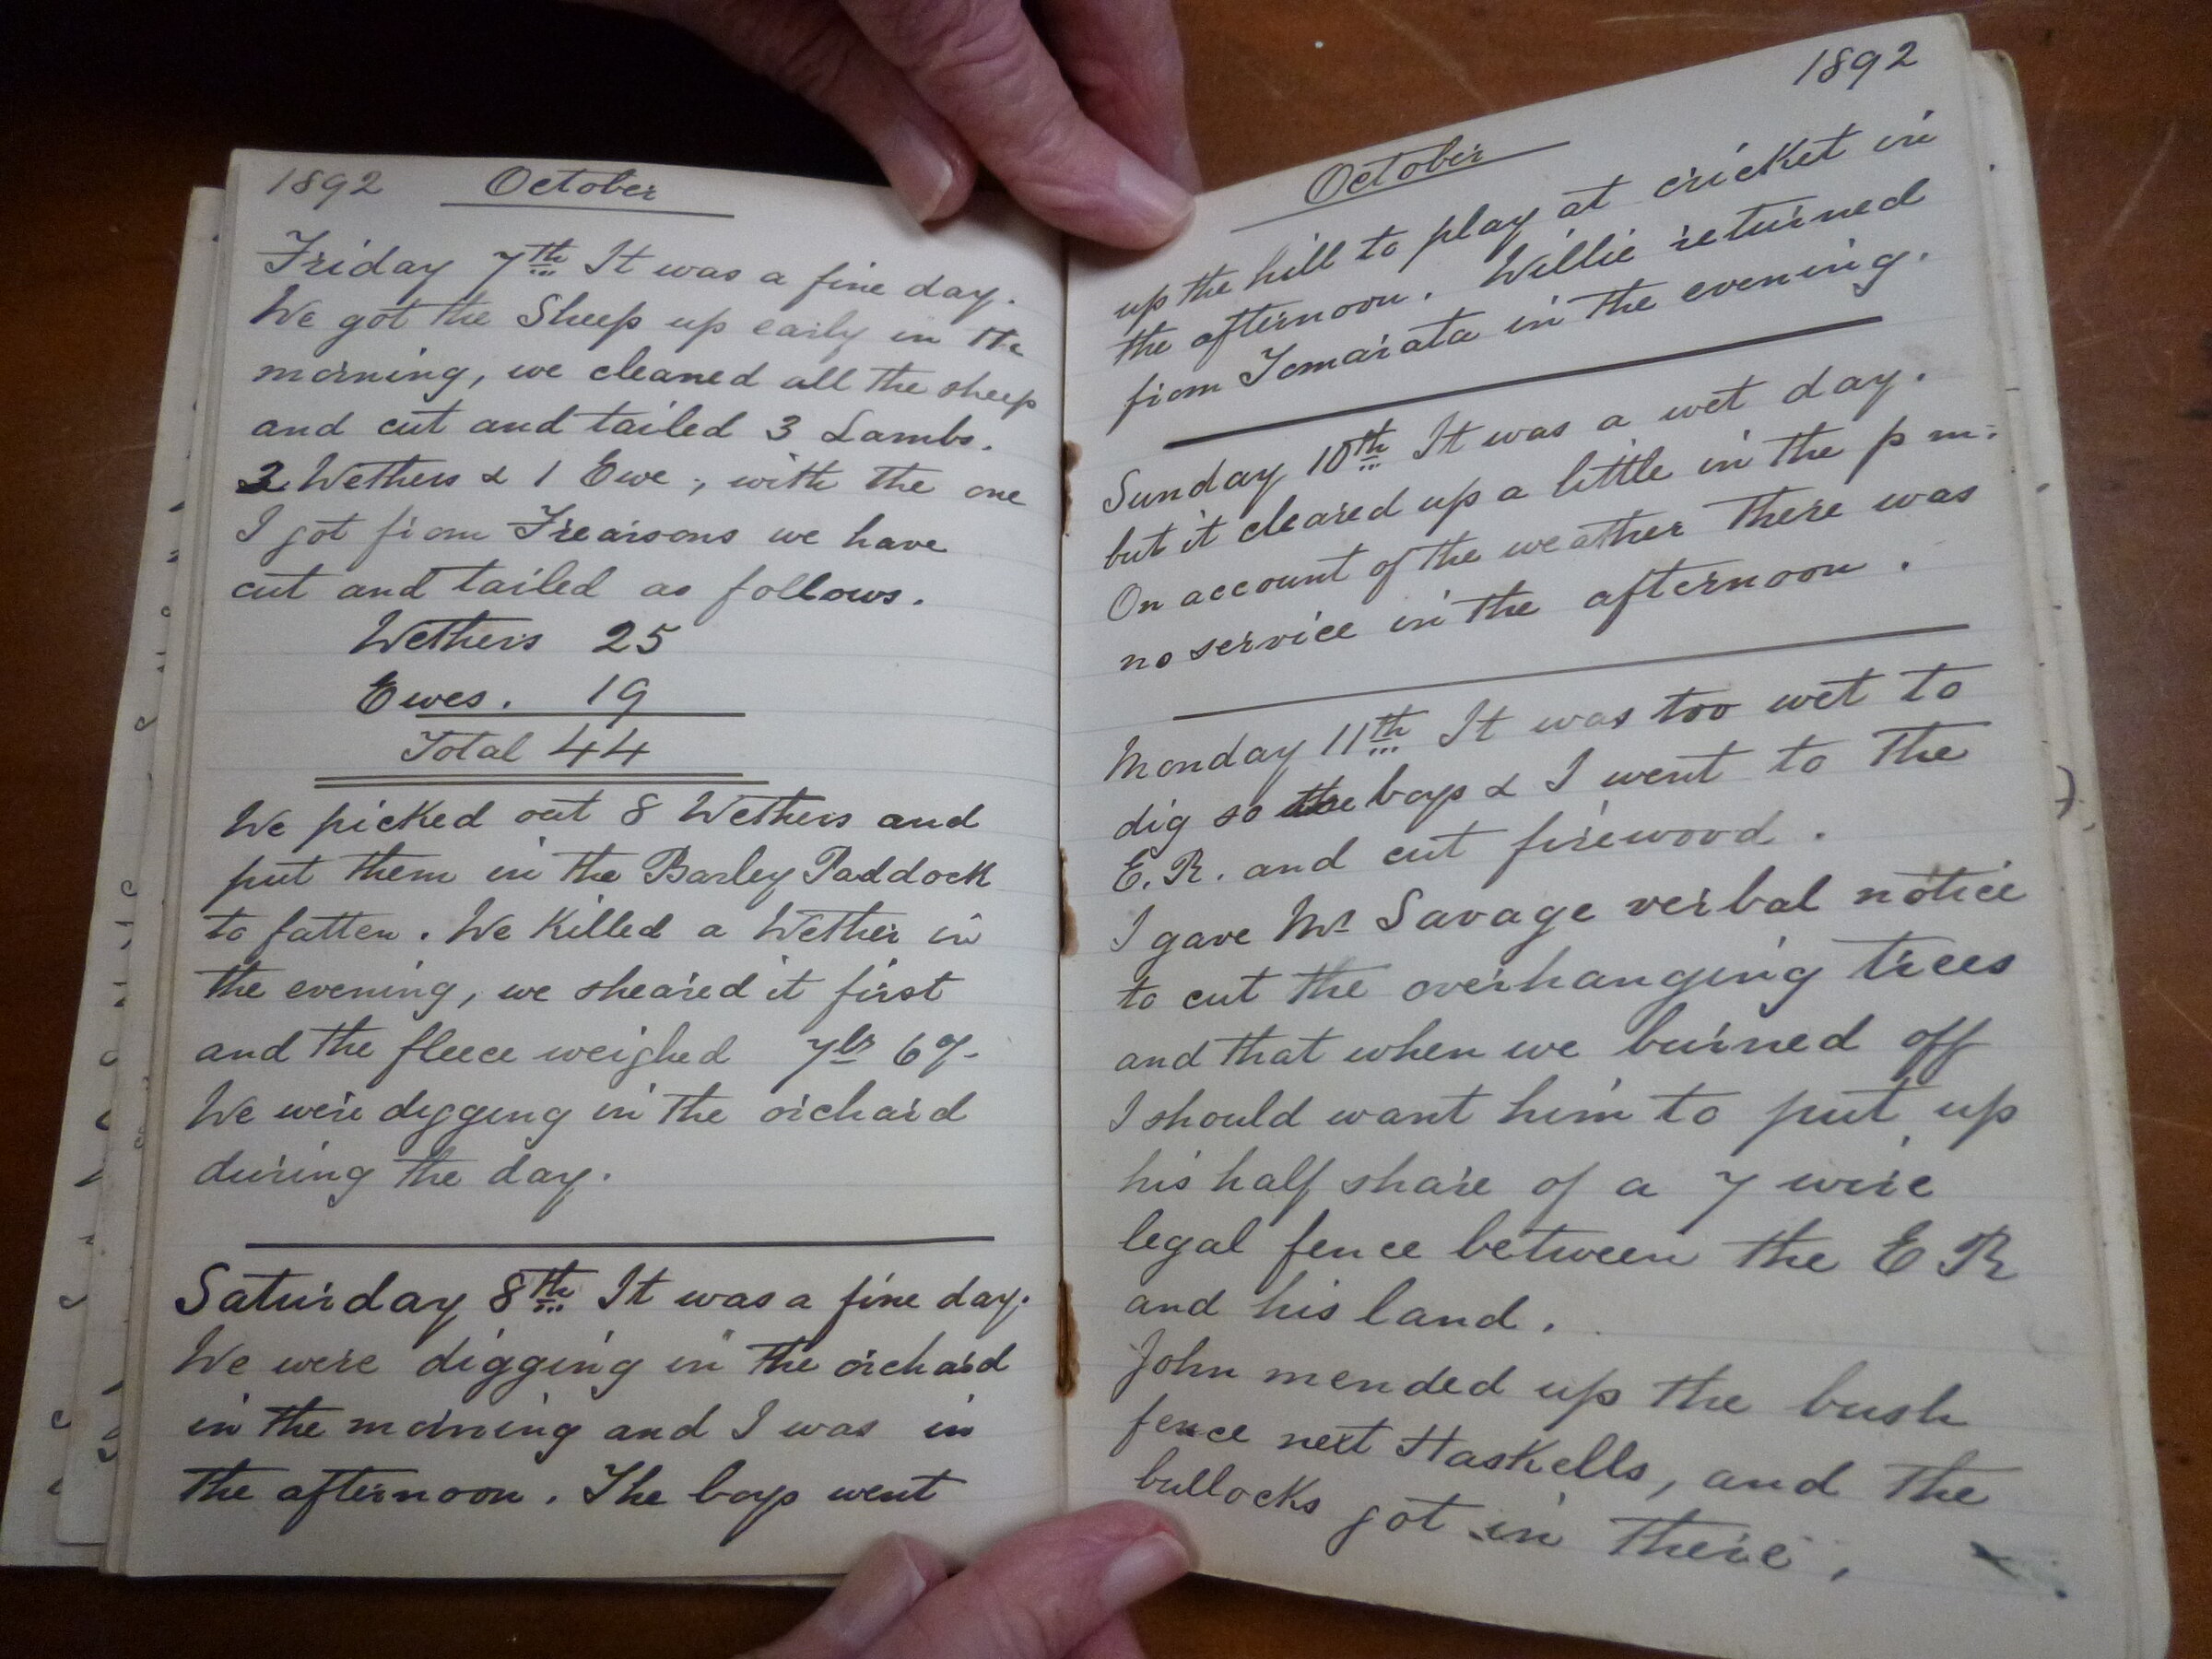 1892 October
Friday 7th It was a fine day.
We got the Sheep up early in the
morning, we cleaned all the sheep
and cut and tailed 3 Lambs.
2 Wethers & 1 Ewe, with the one
I got from Frearsons we have
cut and tailed as follows.
Wethers 25
Ewes. 19
Total 44
We picked out 8 Wethers and
put them in the Barley Paddock
to fatten. We Killed a Wether in
the evening, we sheared it first
and the fleece weighed 7lbs 6oz.
We were digging in the orchard
during the day.
Saturday 8th It was a fine day.
We were digging in the orchard
in the morning and I was in
the afternoon. The boys went
1892
October
up the hill to play at cricket in
the afternoon. Willie returned
from Tomarata in the evening.
Sunday 10th It was a wet day.
but it cleared up a little in the p m.
On account of the weather there was
no service in the afternoon.
Monday 11th It was too wet to
dig so the boys & I went to the
E.R. and cut firewood.
I gave Mr Savage verbal notice
to cut the overhanging trees
and that when we burned off
I should want him to put up
his half share of a 7 wire
legal fence between the E R
and his land.
John mended up the bush
fence next Haskells, and the
bullocks got in there.